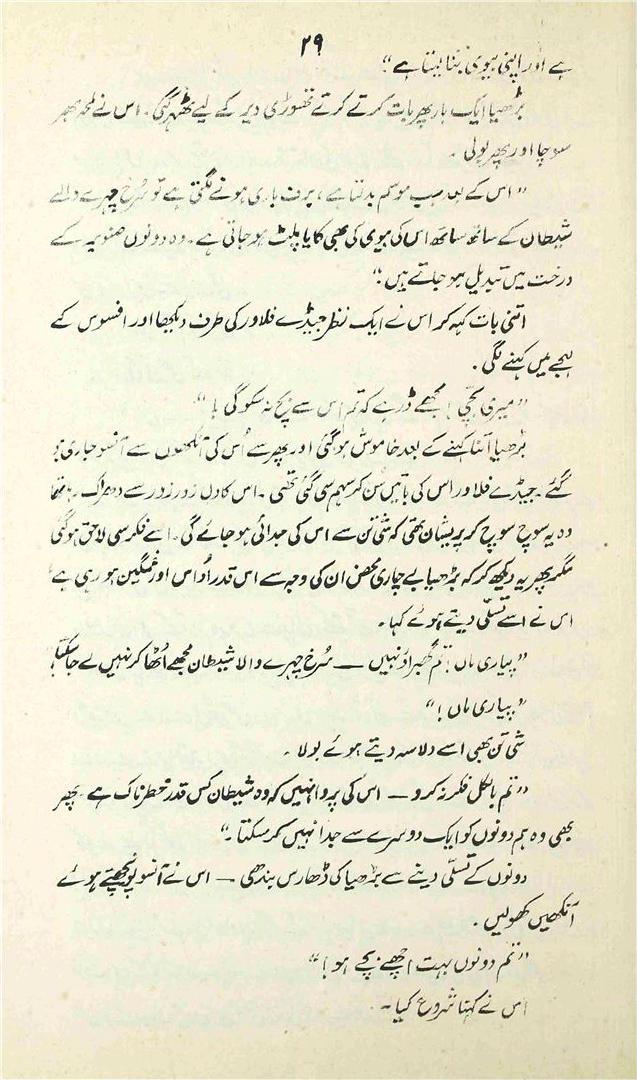 ۲۹
ہے اور اپنی بیوی بنا لیتا ہے“
بڑھیا ایک بار پھر بات کرتے کرتے تھوڑی دیر کے لیے ٹھہر گئی۔ اس نے لمحہ بھر
سوچا اور پھر بولی
”اس کے بعد جب موسم بدلتا ہے، برف باری ہونے لگتی ہے تو سُرخ چہرے والے
شیطان کے ساتھ ساتھ اس کی بیوی کی بھی کایا پلٹ ہو جاتی ہے۔ وہ دونوں صنوبر کے
درخت میں تبدیل ہو جاتے ہیں۔“
اتنی بات کہہ کر اس نے ایک نظر جیڈے فلاور کی طرف دیکھا اور افسوس کے
لہجے میں کہنے لگی۔
”میری بچی! مجھے ڈر ہے کہ تم اس سے بچ نہ سکو گی!“
بڑھیا اتنا کہنے کے بعد خاموش ہو گئی اور پھر سے اُس کی آنکھوں سے آنسو جاری ہو
گئے۔ جیڈے فلاور اس کی باتیں سُن کر سہم سی گئی تھی۔ اس کا دل زور زور سے دھڑک رہا تھا
وہ یہ سوچ سوچ کر پریشان تھی کہ شی تن سے اس کی جدائی ہو جائے گی۔ اسے فکر سی لاحق ہو گئی
مگر پھر یہ دیکھ کر کہ بڑھیا بے چاری محض ان کی وجہ سے اس قدر اُداس اور غمگین ہو رہی ہے
اس نے اسے تسلّی دیتے ہوئے کہا۔
”پیاری ماں! تم گھبراؤ نہیں — سُرخ چہرے والا شیطان مجھے اُٹھا کر نہیں لے جا سکتا!
”پیاری ماں!“
شی تن بھی اسے دلاسہ دیتے ہوئے بولا۔
”تم بالکل فکر نہ کرو — اس کی پروا نہیں کہ وہ شیطان کس قدر خطرناک ہے پھر
بھی وہ ہم دونوں کو ایک دوسرے سے جدا نہیں کر سکتا۔“
دونوں کے تسلّی دینے سے بڑھیا کی ڈھارس بندھی — اس نے آنسو پونچھتے ہوئے
آنکھیں کھولیں۔
”تم دونوں بہت اچھے بچے ہو!“
اس نے کہنا شروع کیا۔